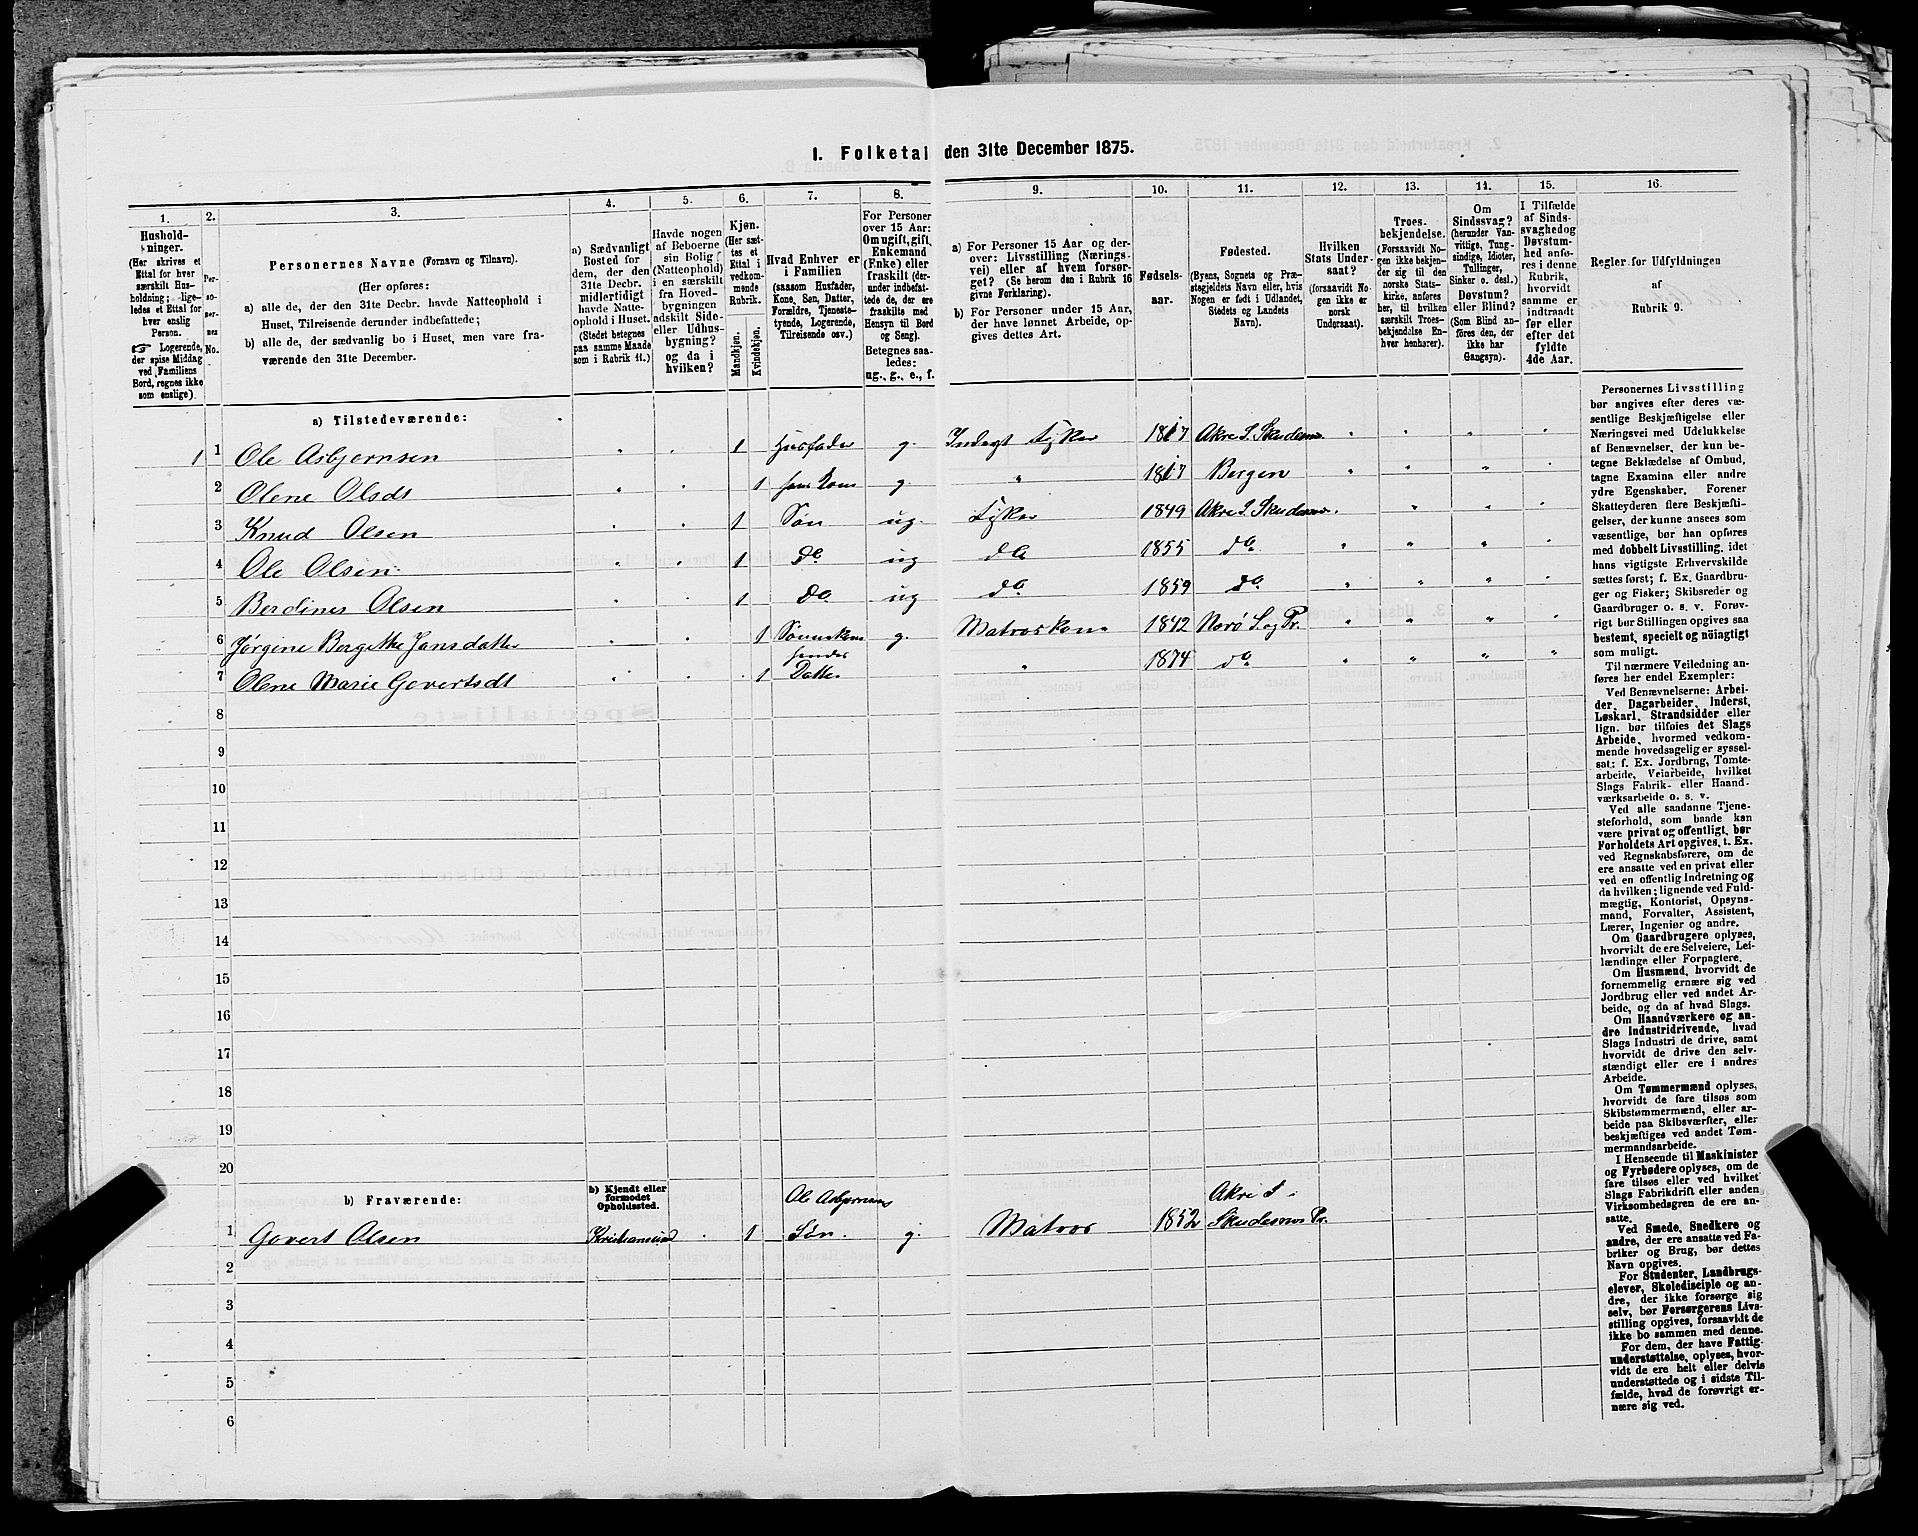 I. Folketal den 31te December 1875.
1. 2. 3. 4. 5. 6. 7. 8. 9. 10. 11. 12. 13. 14. 15. 16.
Hushold-
ninger.
(Her skrives et
Ettal for hver
særskilt Hus-
holdning; lige-
ledes et Ettal for
hver enslig
Person.
☞ Logerende,
der spise Middag
ved Familiens
Bord, regnes ikke
som enslige).
Per-
so-
ner-
nes
No.
Personernes Navne (Fornavn og Tilnavn).
(Her opføres:
a) alle de, der den 31te Decbr. havde Natteophold i
Huset, Tilreisende derunder indbefattede;
b) alle de, der sædvanlig bo i Huset, men vare fra-
værende den 31te December.
a) Sædvanligt
Bosted for
dem, der den
31te Decbr.
midlertidigt
havde Natte-
ophold i Huset.
(Stedet betegnes
paa samme Maade
som i Rubrik 11.)
Havde nogen
af Beboerne
sin Bolig
(Natteophold)
i en særskilt
fra Hoved-
bygningen
adskilt Side-
eller Udhus-
bygning?
og da i
hvilken?
Kjøn.
(Her sæt-
tes et
Ettal i
vedkom-
mende
Rubrik.
Mandkjøn.
Kvindekjøn.
Hvad Enhver er
i Familien
(saasom Husfader,
Kone, Søn, Datter,
Forældre, Tjeneste-
tyende, Logerende,
Tilreisende osv.)
For Personer
over 15 Aar:
Om ugift, gift,
Enkemand
(Enke) eller
fraskilt (der-
under indbefat-
tede de, der ere
fraskilte med
Hensyn til Bord
og Seng).
Betegnes saa-
ledes:
ug., g., e., f.
a) For Personer 15 Aar og der-
over: Livsstilling (Nærings-
vei) eller af hvem forsør-
get? (Se herom den i Rubrik 16
givne Forklaring).
b) For Personer under 15 Aar,
der have lønnet Arbeide, op-
gives dettes Art.
Fødsels-
aar.
Fødested.
(Byens, Sognets og Præ-
stegjeldets Navn eller, hvis
Nogen er født i Udlandet,
Stedets og Landets
Navn).
Hvilken
Stats Under-
saat?
(forsaavidt No-
gen ikke er
norsk
Undersaat).
Troes-
bekjendelse.
(Forsaavidt No-
gen ikke bekjen-
der sig til den
norske Stats-
kirke, anføres
her, til hvilken
særskilt Troes-
bekjendelse En-
hver henhører).
Om
Sindssvag?
(herunder Van-
vittige, Tung-
sindige, Idioter,
Tullinger,
Sinker o. desl.)
Døvstum?
eller Blind?
(Som Blind an-
føres den, der
ikke har
Gangsyn).
I Tilfælde
af Sinds-
svaghed og
Døvstum-
hed anføres
i denne
Rubrik,
hvorvidt
samme er
indtraadt
før eller
efter det
fyldte
4de Aar.
Regler for Udfyldningen
af
Rubrik 9.
a) Tilstedeværende:
1 1 Ole Asbjernsen 1 Husfader g. Indegt Fisker 1817 Akre S. Skudesn.
2 Olene Olsdt 1 hans Kone g. 1817 Bergen
3 Knud Olsen 1 Søn ug. Fisker 1849 Akre S. Skudesn.
4 Ole Olsen 1 Do ug do 1855 do
5 Berdines Olsen 1 Do. ug do 1859 do
6 Jørgine Bergitthe Jansdatter 1 Sønnekone g. Matroskone 1842 Nerö S. og Pr.
7 Olene Marie Govertsdt 1 hendes Datter 1874 do
8
9
10
11
12
13
14
15
16
17
18
19
20
b) Fraværende:
b) Kjendt eller
formodet
Opholdssted.
1 Govert Olsen Kristiansund 1 Ole Asbjernsens Søn. g. Matros 1852 Akre S. Skudesnes Pr.
2
3
4
5
6
Personernes Livsstilling
bør angives efter deres væ-
sentlige Beskjæftigelse eller
Næringsvei med Udelukkelse
af Benævnelser, der kun be-
tegne Beklædelse af Ombud,
tagne Examina eller andre
ydre Egenskaber. Forener
Skatteyderen flere Beskjæfti-
gelser, der kunne ansees som
væsentlige, bør han opføres
med dobbelt Livsstilling, idet
hans vigtigste Erhvervskilde
sættes først; f. Ex. Gaardbru-
ger og Fisker; Skibsreder og
Gaardbruger o. s. v. Forøv-
rigt bør Stillingen opgives saa
bestemt, specielt og nøiagtigt
som muligt.
Til nærmere Veiledning an-
føres her endel Exempler:
Ved Benævnelserne: Arbei-
der, Dagarbeider, Inderst,
Løskarl, Strandsidder eller
lign. bør tilføies det Slags
Arbeide, hvormed vedkom-
mende hovedsagelig er syssel-
sat; f. Ex. Jordbrug, Tomte-
arbeide, Veiarbeide, hvilket
Slags Fabrik- eller Haand-
værksarbeide o. s. v.
Ved alle saadanne Tjene-
steforhold, som baade kan
være privat og offentligt, bør
Forholdets Art opgives, t. Ex.
ved Regnskabsførere, om de
ere ansatte ved en privat eller
ved en offentlig Indretning og
da hvilken; lignende ved Fuld-
mægtig, Kontorist, Opsyns-
mand, Forvalter, Assistent,
Lærer, Ingeniør og andre.
Om Gaardbrugere oplyses,
hvorvidt de ere Selveiere, Lei-
lændinge eller Forpagtere.
Om Husmænd, hvorvidt de
fornemmelig ernære sig ved
Jordbrug eller ved andet Ar-
beide, og da af hvad Slags.
Om Haandværkere og an-
dre Industridrivende, hvad
Slags Industri de drive, samt
hvorvidt de drive den selv-
stændigt eller ere i andres
Arbeide.
Om Tømmermænd oplyses,
hvorvidt de fare tilsøs som
Skibstømmermænd, eller ar-
beide paa Skibsværfter, eller
beskjæftiges ved andet Tøm-
mermandsarbeide.
I Henseende til Maskinister
og Fyrbødere oplyses, om de
fare tilsøs eller ved hvilket
Slags Fabrikdrift eller anden
Virksomhedsgren de ere an-
satte.
Ved Smede, Snedkere og
andre, der ere ansatte ved Fa-
briker og Brug, bør dettes
Navn opgives.
For Studenter, Landbrugs-
elever, Skoledisciple og an-
dre, der ikke forsørge sig
selv, bør Forsørgerens Livs-
stilling opgives, forsaavidt de
ikke bo sammen med denne.
For dem, der have Fattig-
understøttelse, oplyses, hvor-
vidt de ere helt eller delvis
understøttede og i sidste Til-
fælde, hvad de forøvrigt er-
nære sig ved.